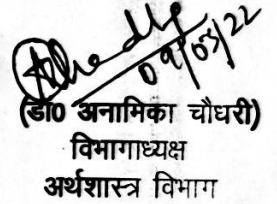 09/05/22
(डॉ0 अनामिका चौधरी)
विभागाध्यक्ष
अर्थशास्त्र विभाग